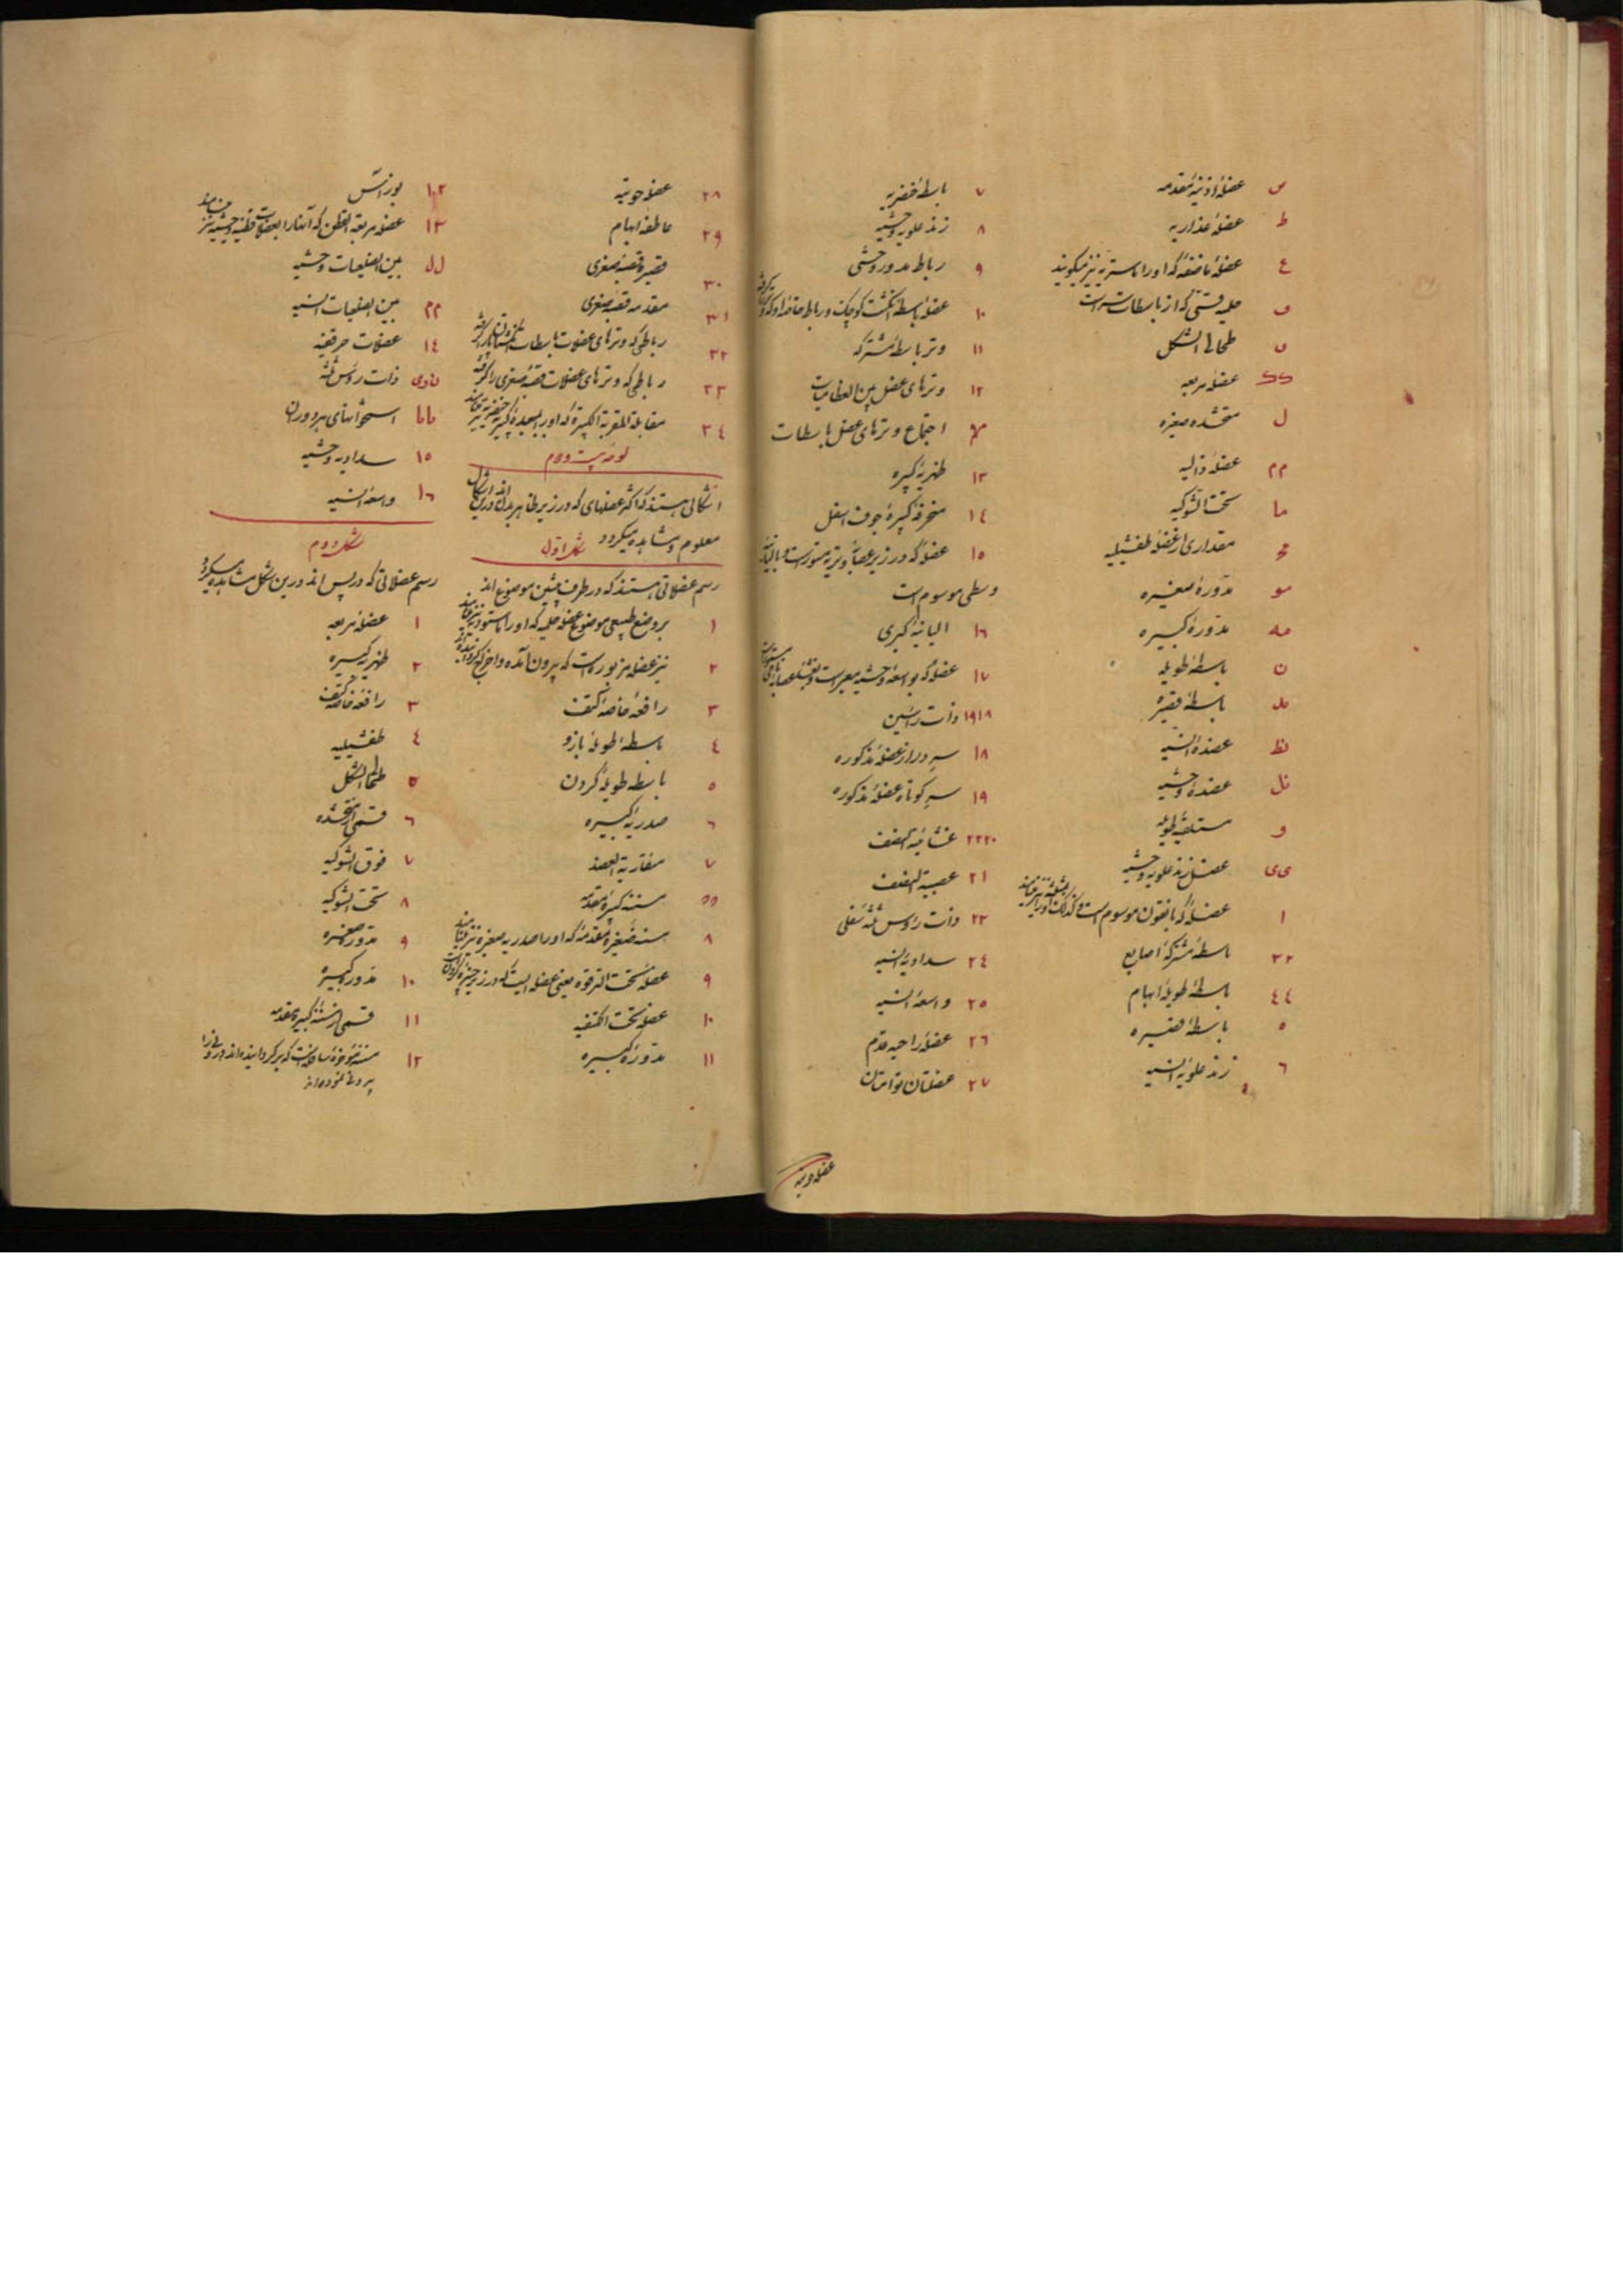 ص عضلهٔ اذنیهٔ مقدمه
ط عضلهٔ عذاریه
ع عضلهٔ ماضغه که اورا ماستریه نیز میکویند
ف حلمیه قسمتی که از باسطات سراست
ں طحالی الشکل
عضلهٔ مربعه
ل متحده صغیره
م م عضلهٔ دالیه
ما تحت الشوکیه
مقداری از عضلهٔ طفشیلیه
مو مدورهٔ صغیره
مه مدورهٔ کبیره
ن باسطهٔ طویله
مد باسطهٔ قصیره
نط عضدهٔ انسیه
نل عضدهٔ وحشیه
و مستلقیهٔ طویله
ی ی عضل زند علویه وحشیه
ا عضلهٔ که بانقون موسوم است
٣٣ باسطهٔ مشترکهٔ اصابع
٤٤ باسطهٔ طویلهٔ ابهام
٥ باسطهٔ قصیره
٦ زند علویهٔ انسیه
٧ باسطهٔ خنصریه
٨ زند علویهٔ وحشیه
٩ رباط مدور وحشی
١٠ عضلهٔ باسطهٔ انکشت کوچک و رباط خاصهٔ او که
١١ وتر باسطهٔ مشترکه
١٢ وترهای عضل بین العظامیات
اجتماع وترهای عضل باسطات
١٣ ظهریهٔ کبیره
١٤ منحرفهٔ کبیرهٔ جوف اسفل
١٥ عضلهٔ که در زیر عصابهٔ وتریه مستور است و بالیانیهٔ
وسطی موسوم است
١٦ الیانیهٔ کبری
١٧ عضلهٔ که بواسعهٔ وحشیه معبر است
١٨ ١٩ ذات راسین
١٨ سر دراز عضلهٔ مذکوره
١٩ سر کوتاه عضلهٔ مذکوره
٢٠ ٢٢ غشائیهٔ النصف
٢١ عصبیهٔ النصف
٢٣ ذات رؤس ثلثهٔ سفلی
٢٤ سداویهٔ انسیه
٢٥ واسعهٔ انسیه
٢٦ عضلهٔ راحیه قدم
٢٧ عضلتان توامتان
٢٨ عضلهٔ حوتیه
٢٩ عاطفهٔ ابهام
٣٠ قصیرهٔ قصبهٔ صغری
٣١ مقدمه قصبهٔ صغری
٣٢ رباطی که وترهای عضلات باسطات
٣٣ رباطی که وترهای عضلات قصبهٔ صغری را کرفته
٣٤ مقابلة المقربة الکبیره که اورا مبعدهٔ کبیر خنصریه نیز
لوحهٔ بیست و دوم
اشکالی هستند که اکثر عضلهای که در زیر ظاهر بدن اند درین اشکال
معلوم و مشاهده میکردد شکل اول
رسم عضلاتی هستند که در طرف پیشین موضوع اند
١ بر وضع طبیعی موضوع عضلهٔ حلمیه که اورا ماستودیه نیز
٢ نیز عضلهٔ مزبوره است که بیرون آمده و اخراج کردیده
٣ رافعهٔ خاصهٔ کتف
٤ باسطهٔ طویلهٔ بازو
٥ باسطه طویلهٔ کردن
٦ صدریهٔ کبیره
٧ منقاریة العضد
مسننه کبیرهٔ مقدمه
٨ مسننه صغیرهٔ مقدمه که اورا صدریه صغیره نیز مینامند
٩ عضلهٔ تحت الترقوه یعنی عضله ایست که در زیر چنبرهٔ کردن است
١٠ عضلهٔ تحت الکتفیه
١١ مدورهٔ کبیره
١٢ بوزاس
١٣ عضلهٔ مربعة القطن که آنها را بعضلات قطنیهٔ وحشیه نیز مینامند
ل ل بین الضلعیات وحشیه
م م بین الضلعیات انسیه
١٤ عضلات حرقفیه
ذات رؤس ثلثه
ماما استخوانهای هر دو ران
١٥ سداویه وحشیه
١٦ واسعهٔ انسیه
شکل دوم
رسم عضلاتی که در پس اند درین شکل مشاهده میکردد
١ عضلهٔ مربعه
٢ ظهریه کبیره
٣ رافعهٔ خاصهٔ کتف
٤ طفشیلیه
٥ طحالی الشکل
٦ قسمی از متحده
٧ فوق الشوکیه
٨ تحت الشوکیه
٩ مدوره صغیره
١٠ مدوره کبیره
١١ قسمی از مسننهٔ کبیرهٔ مقدمه
١٢ مسننهٔ مؤخرهٔ
عضله حوتیه